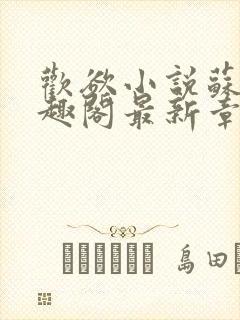 歡欲小說蘇
趣閣最新章
島田